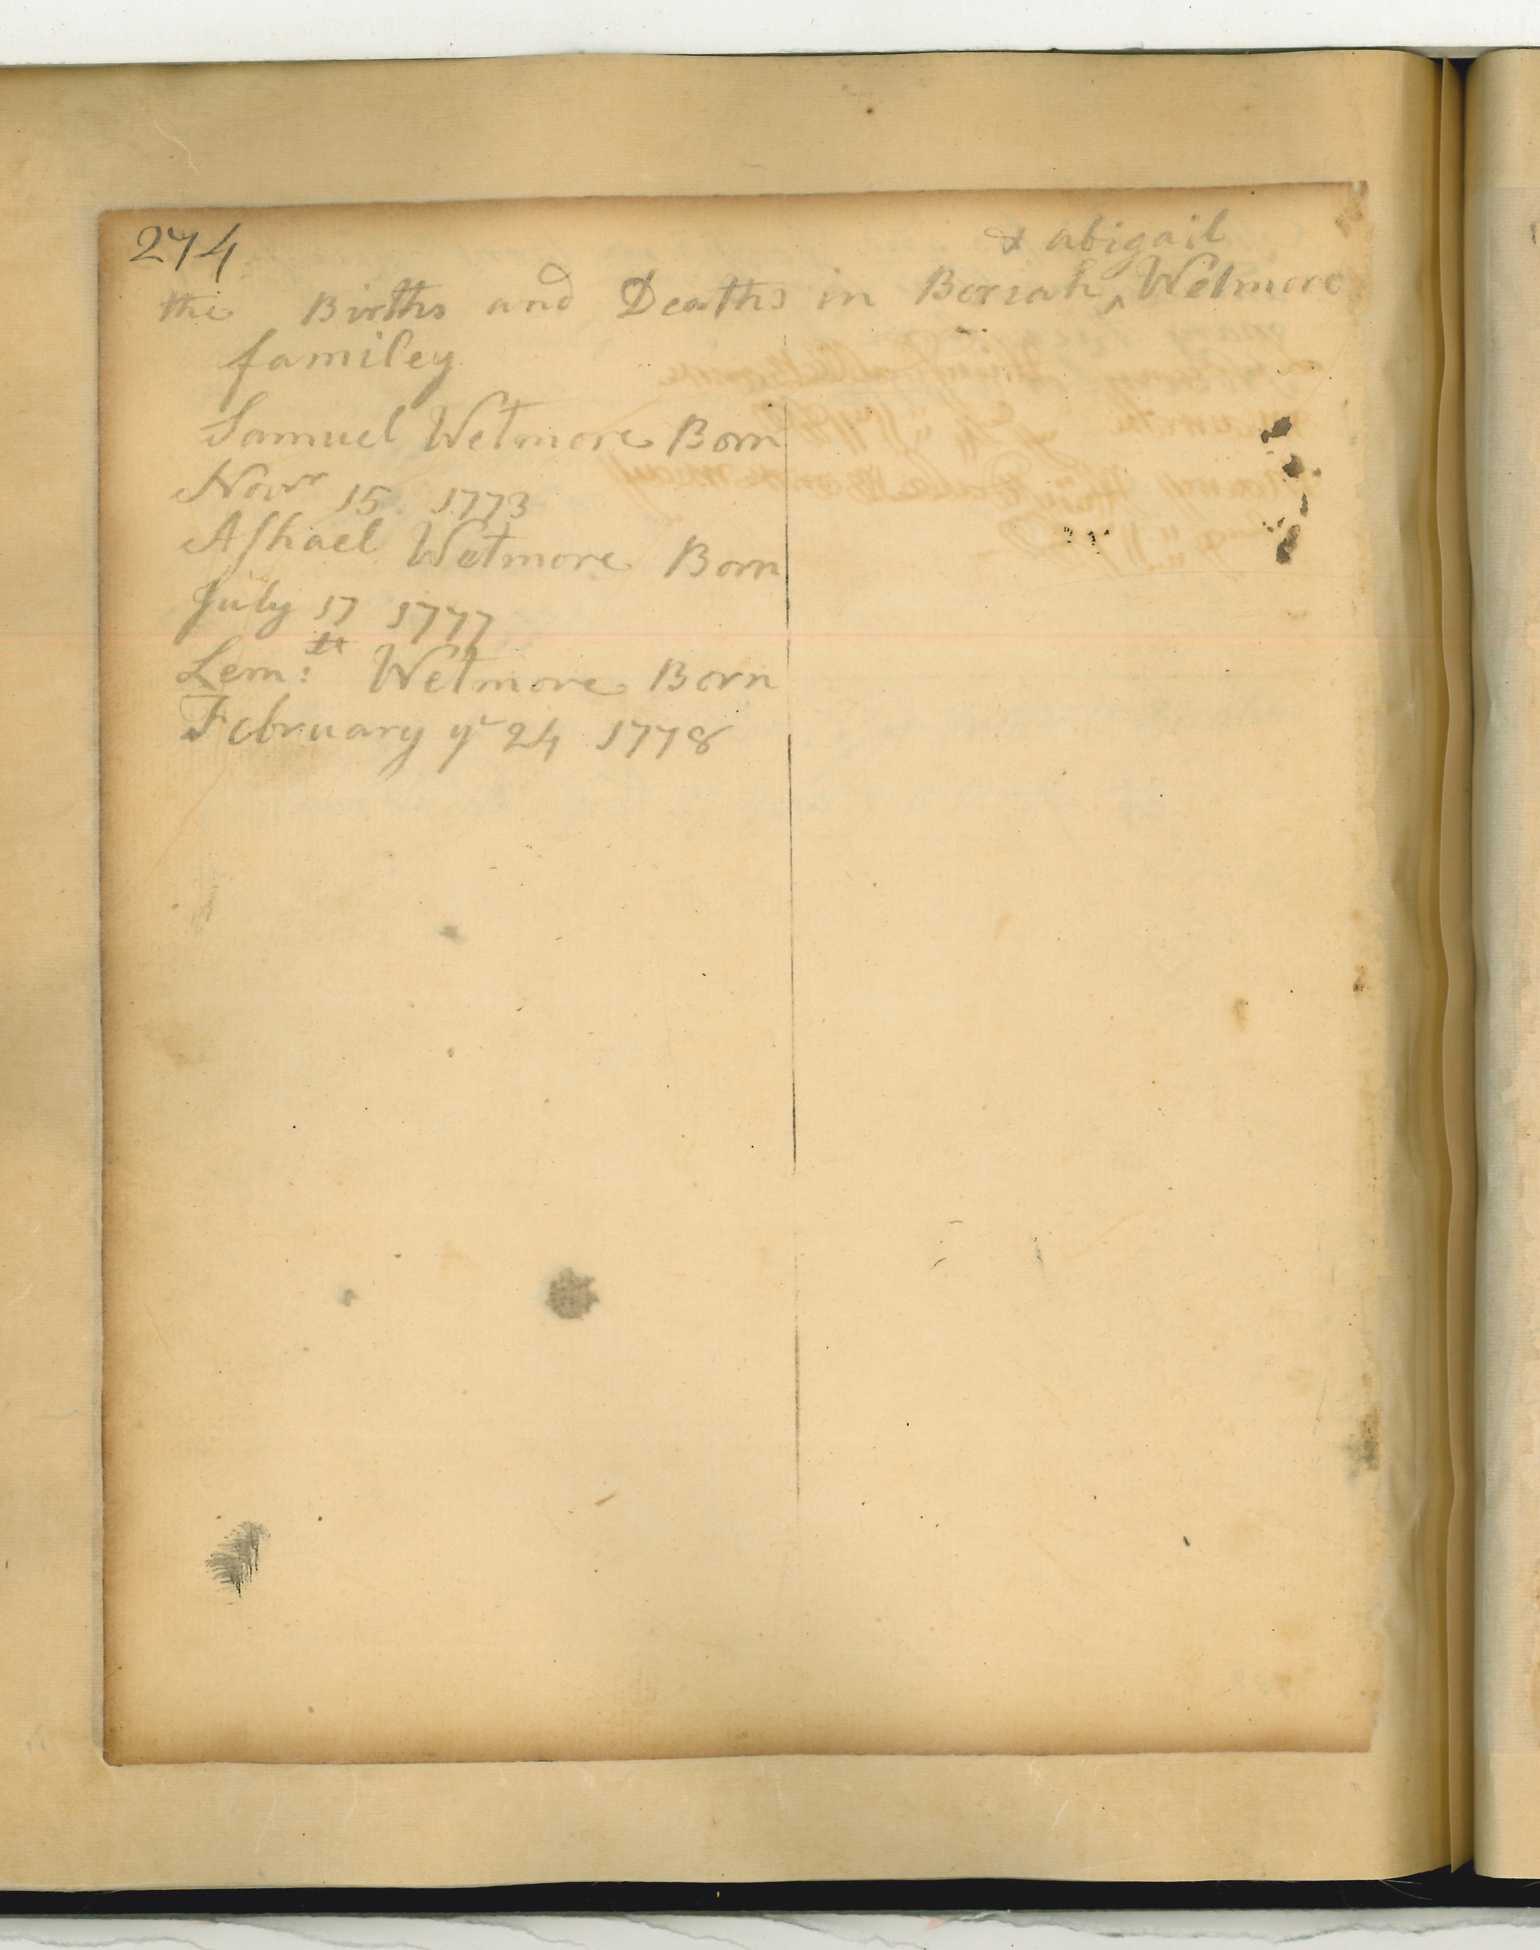 274
& abigail
the Births and Deaths in Beriah ^ Wetmore
familey
Samuel Wetmore Born
Novr 15 1773
Ashael Wetmore Born
July 17 1777
Lem:ll Wetmore Born
February ye 24 1778